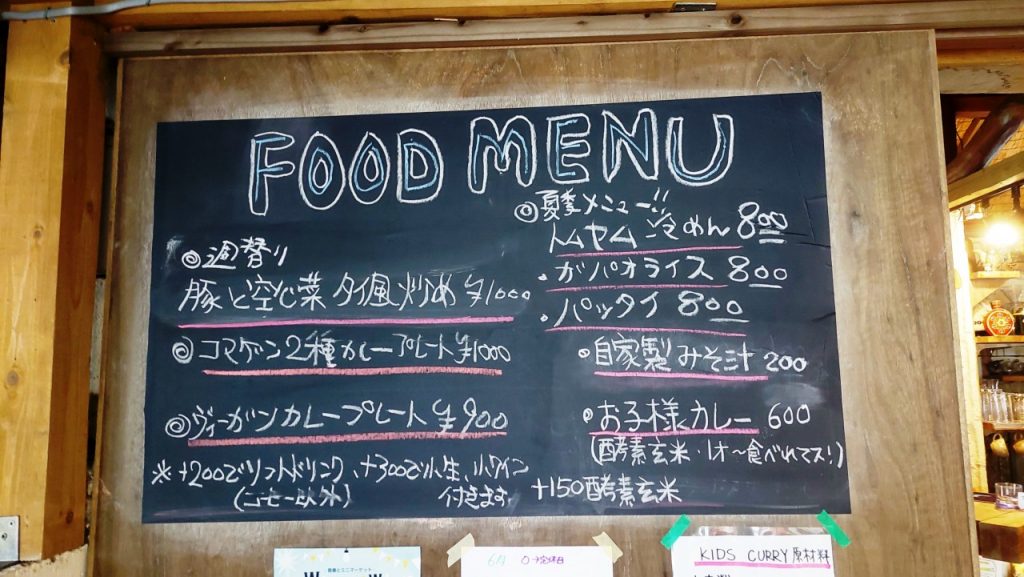 FOOD MENU
◎週替り
豚と空心菜 タイ風炒め ¥1000
◎コマゲン2種カレープレート¥1000
◎ヴィーガンカレープレート ¥900
※+200でソフトドリンク、+300で小生、小ワイン
(コーヒー以外) 付きます
◎夏季メニュー!!
トムヤム冷めん 800
・ガパオライス 800
・パッタイ 800
・自家製みそ汁 200
・お子様カレー 600
(酵素玄米・1才〜食べれてマス!)
+150酵素玄米
KIDS CURRY原材料